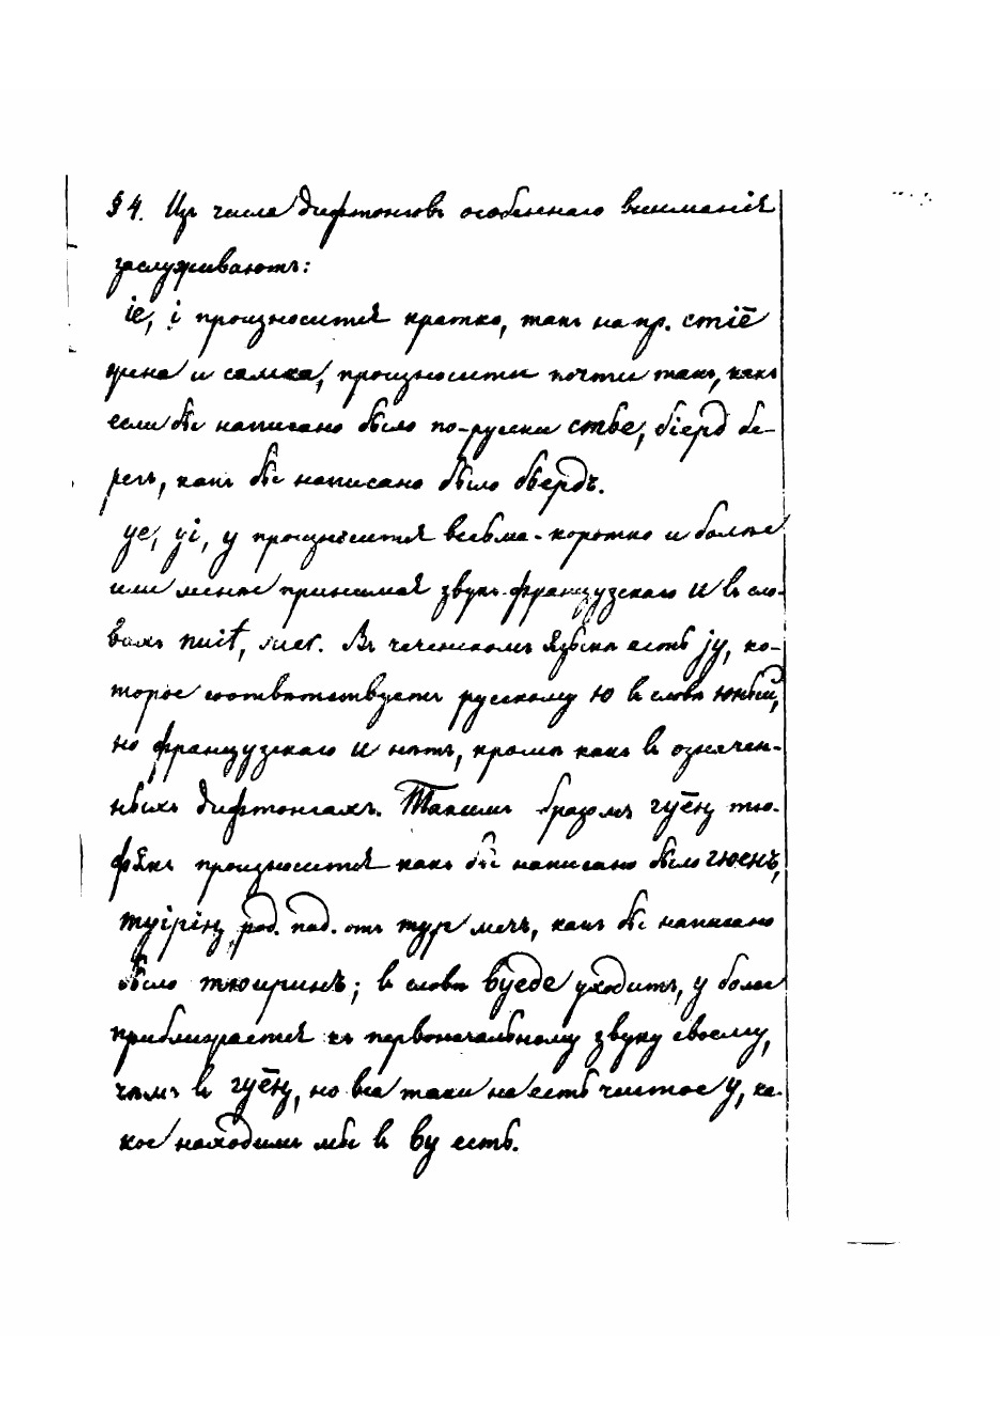 § 4. Изъ числа дифтонговъ особеннаго вниманія
заслуживаютъ:
іе, і произносится кратко, такъ напр. стіē
жена и самка, произносити почти такъ, какъ
если бы написано было по-русски стье, бієрд бе-
регъ, какъ бы написано было бьердъ.
уе, уі, у произносится весьма коротко и болѣе
или менѣе принимая звукъ французскаго и въ сло-
вахъ nuit, suer. Въ чеченскомъ языкѣ есть jу, ко-
торое соотвѣтствуетъ русскому ю въ словѣ юный,
но французскаго и нѣтъ, кромѣ какъ въ означен-
ныхъ дифтонгахъ. Такимъ образомъ гуēң тю-
фякъ произносится какъ бы написано было гюенъ,
туірің род. пад. отъ тур мечъ, какъ бы написано
было тюиринъ; въ словѣ вуеде уходитъ, у болѣе
приближается къ первоначальному звуку своему,
чѣмъ въ гуēң, но все таки не есть чистое у, ка-
кое находимъ мы въ ву есть.